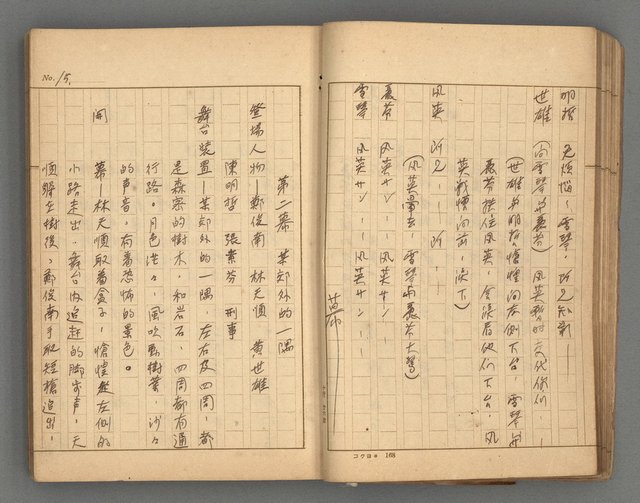 明哲　无煩惱—雪琴，所以知影—
世雄　（向雪琴与素芬）風英暫時交代你们—
（世雄与明哲，惶惶向左側下台，雪琴与
素芬扶住風英，含淚看他们下台，風
英戰慄向前，淡下）
風英　所以——所——
（風英暈去，雪琴与素芬大驚）
素芬　風英サン——風英サン—
雪琴　風英サン——風英サン—
幕
コクヨ 168
No. 15.
第二幕　某郊外的一隅
登場人物—鄭俊南　林天順　黃世雄
陳明哲　張素芬　刑事
舞台裝置—某郊外的一隅，左右及四周，都
是森密的樹木，和岩石，四周都有通
行路。月色淡々，風吹動樹葉，沙々
的声音。有着恐怖的景色。
開　幕—林天順取着盒子，愴惶從左側的
小路走出，舞台内追赶的脚步声，天
順躲在樹後，鄭俊南手取短槍追出，